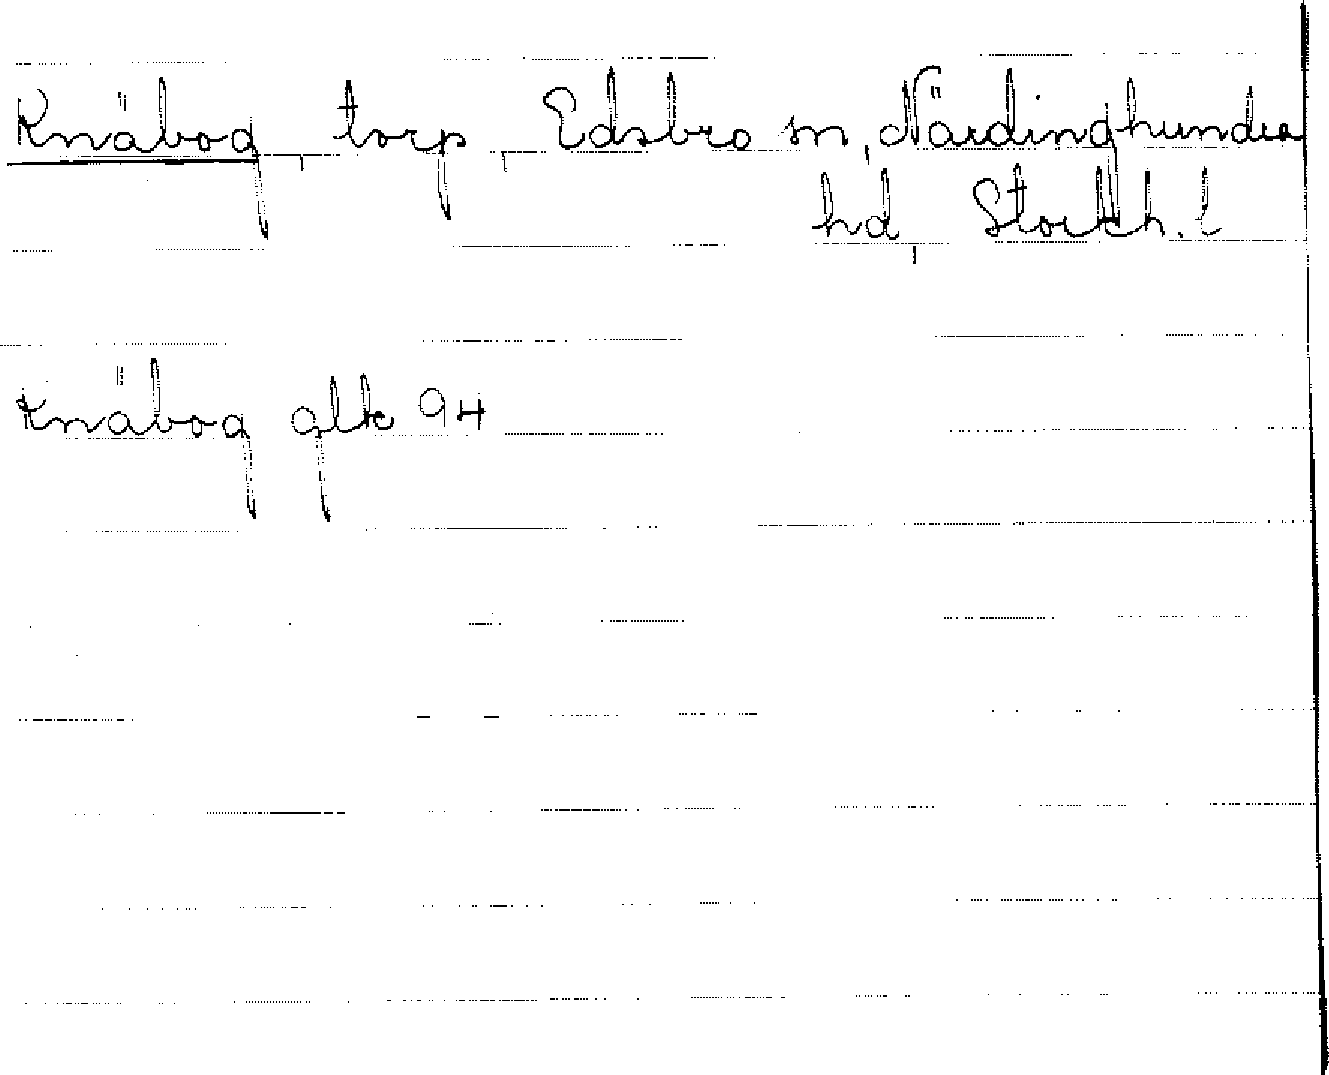 Knäbog, torp, Edsbro sn, Närdinghundra
hd, Stockh. l
Knäbog glk 94